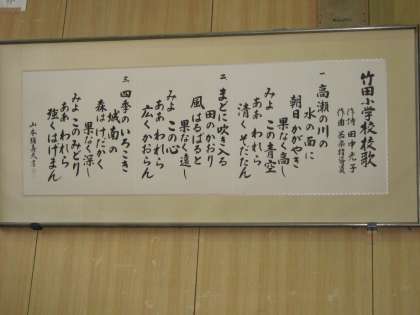 竹田小学校校歌
作詩 田中允子
作曲 音楽指導員
一 高瀬の川の
水の面に
朝日かがやき
果なく高し
みよ この青空
ああ われら
清く そだたん
二 まどに吹き入る
田のかおり
風はるばると
果なく遠し
みよ この心
ああ われら
広く かおらん
三 四季のいろこき
城南の
森は けだかく
果なく深し
みよ このみどり
ああ われら
強く はげまん